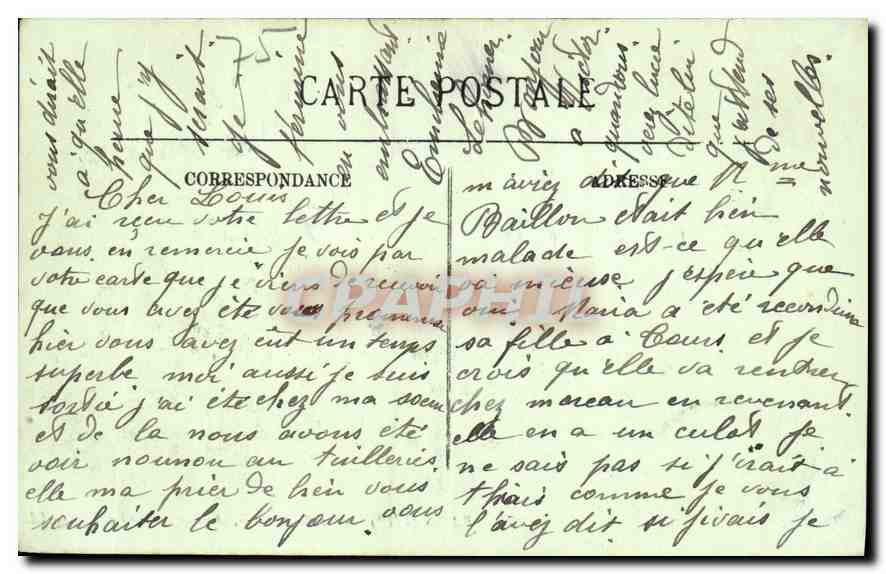 CARTE POSTALE
CORRESPONDANCE
ADRESSE
75
Cher Louis
J'ai reçu votre lettre et je
vous en remercie je vois par
votre carte que je viens de recevoir
que vous avez été vous promener
hier vous avez eût un temps
superbe moi aussi je suis
sortie j'ai été chez ma soeur
et de la nous avons été
voir nounou au tuilleries
elle ma prier de bien vous
souhaiter le bonjour vous
m'aviez dit que Mme
Baillon était bien
malade est-ce qu'elle
va mieux j'espère que
oui Maria a été reconduire
sa fille à Tours et je
crois qu'elle va rentrer
chez moreau en revenant
elle en a un culot je
ne sais pas si j'irait à
thiais comme je vous
l'avez dit si j'ivais je
vous dirait
a qu'elle
heure
que j'y
serait
je
termine
en vous
embrassant
Bonjour
a Victor
quand vous
verez lucie
dite lui
que
j'attend
de ses
nouvelles
CPAPHIL